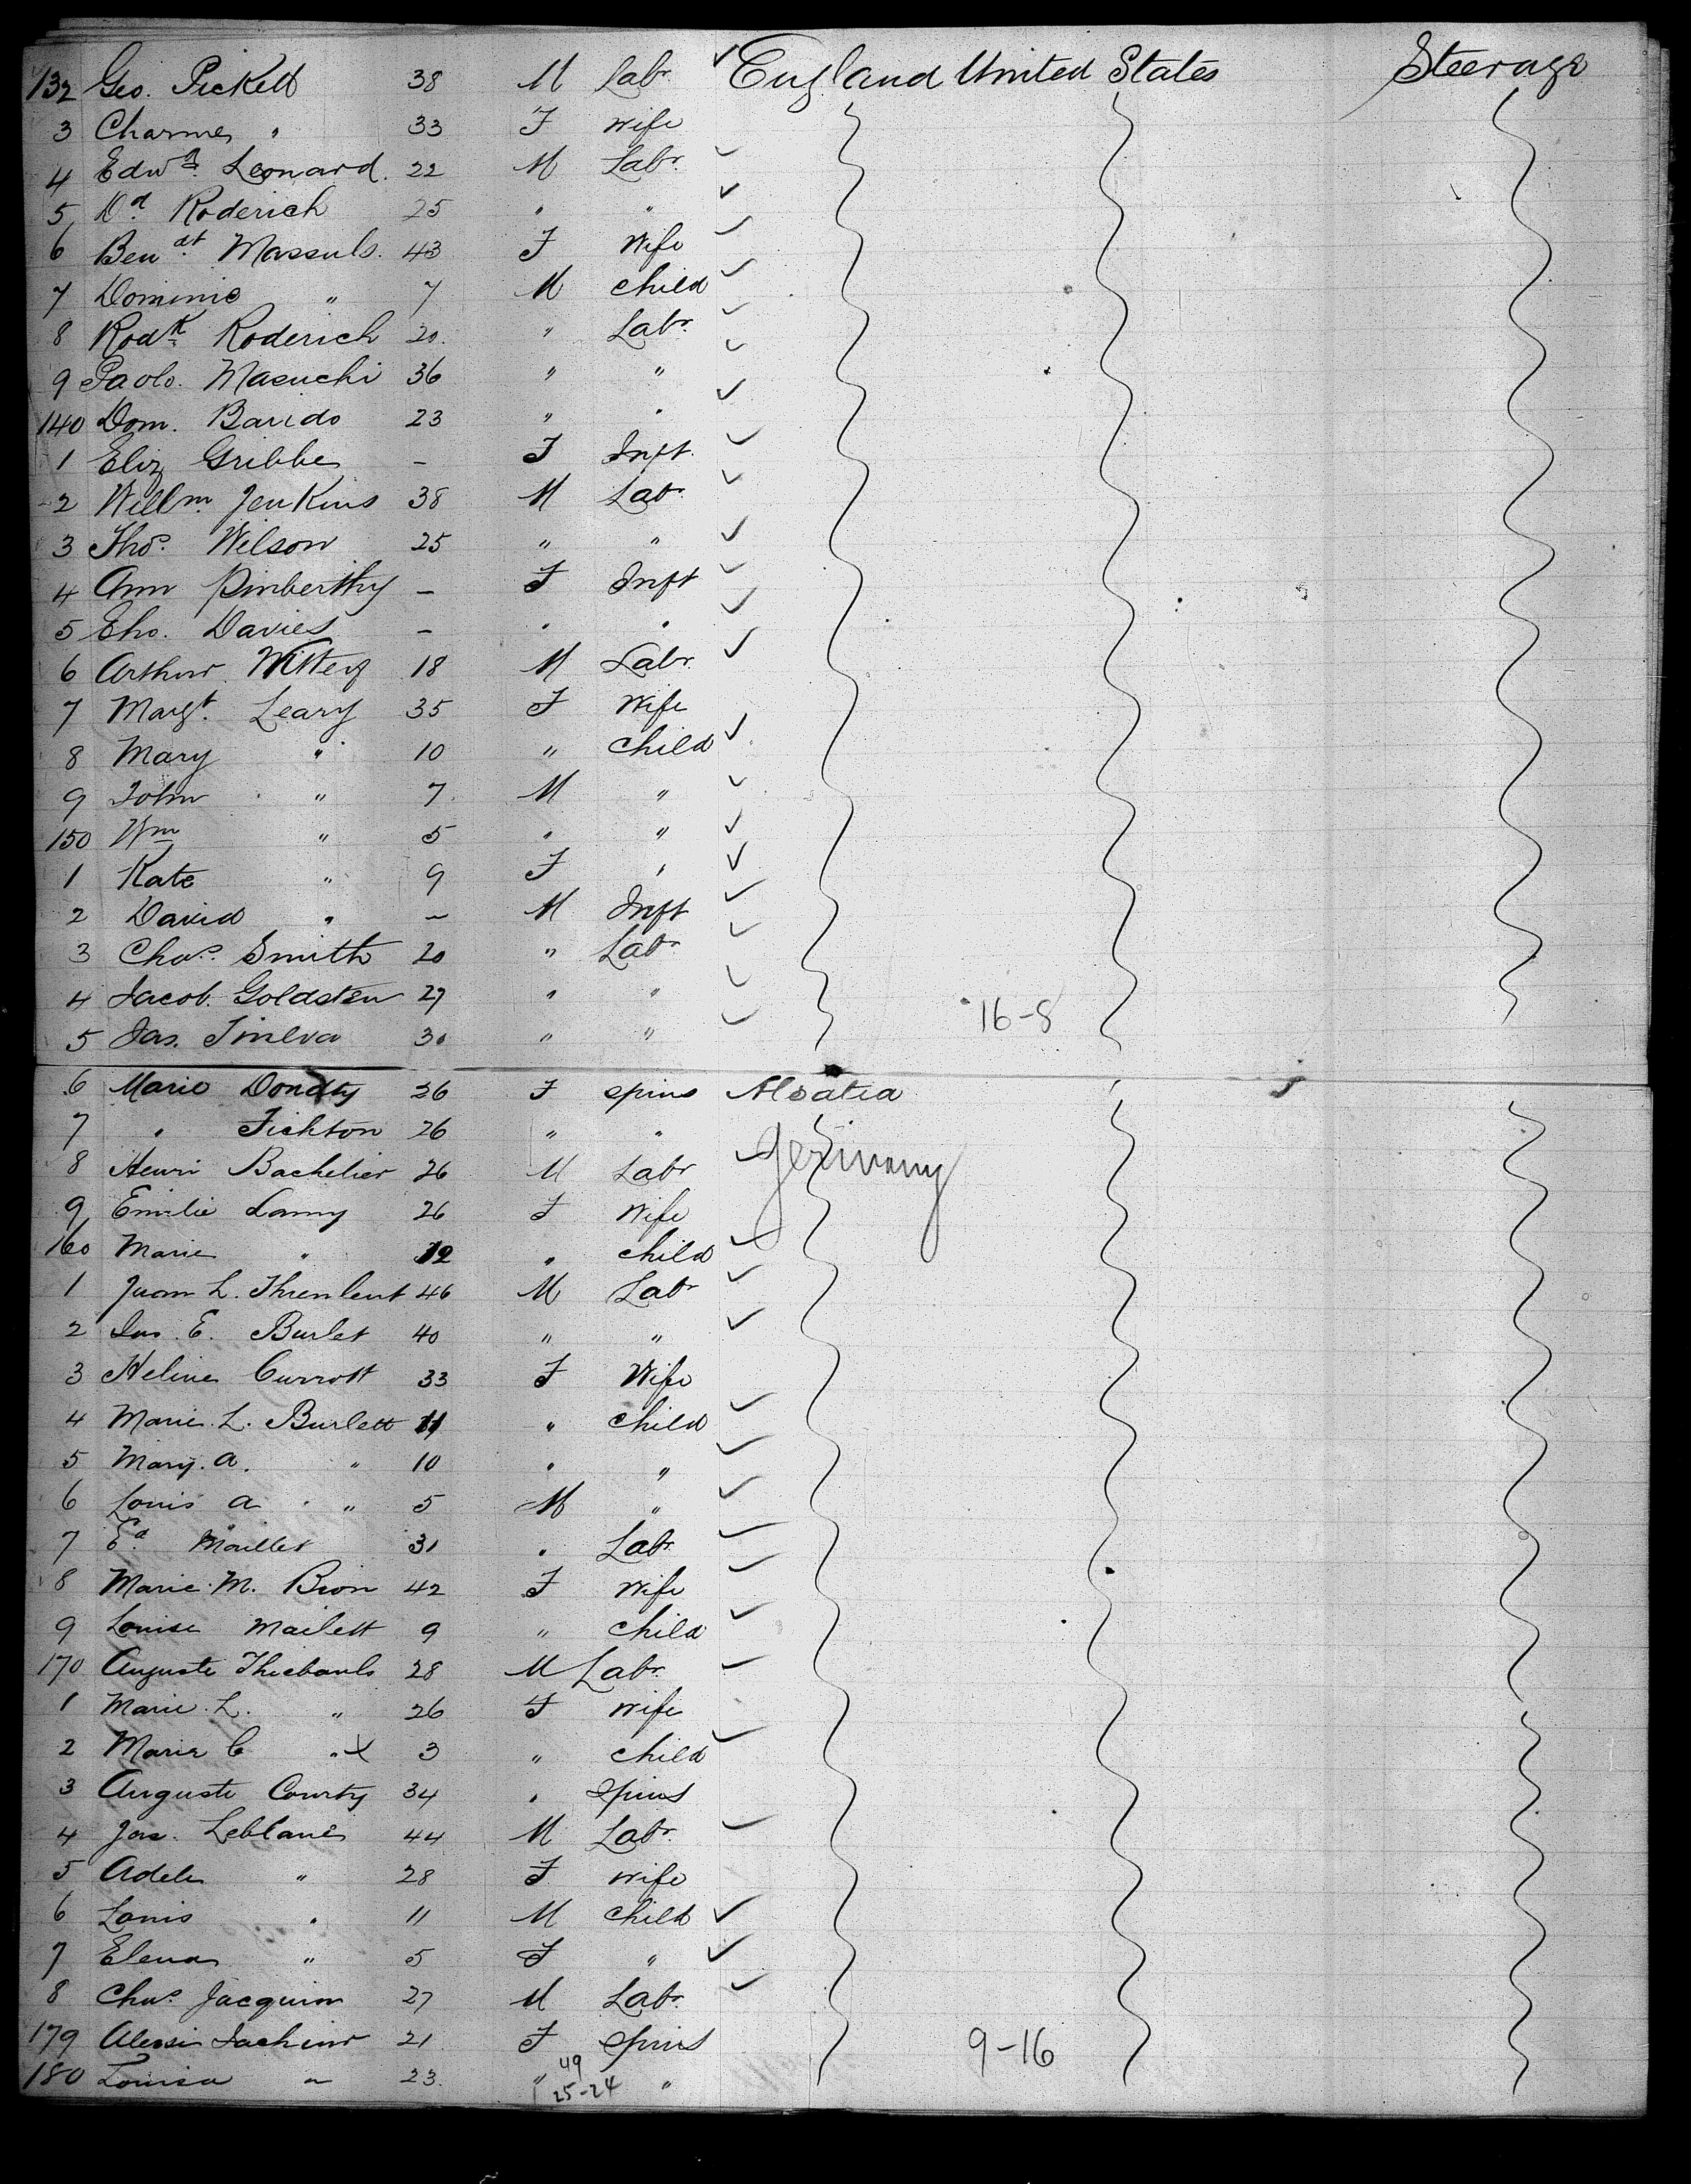 132 Geo. Pickett 38 M Labr. England United States Steerage
3 Charme " 33 F Wife
4 Edwd. Leonard. 22 M Labr.
5 Dd Roderich 25 " "
6 Bendt Massuls. 43 F Wife
7 Dominic " 7 M Child
8 Rodk Roderich 20. " Labr.
9 Paolo. Masuchi 36 " "
140 Dom. Barido 23 " "
1 Eliz Gribbe - F Inft.
2 Willm. Jenkins 38 M Labr.
3 Thos. Wilson 25 " "
4 Ann Pimberthy - F Inft
5 Davies - " "
6 Arthur 18 M Labr.
7 Margt. Leary 35 F Wife
8 Mary " 10 " Child
9 John " 7. M "
150 Wm " 5 " "
1 Kate " 9 F "
2 David " - M Inft
3 Chas. Smith 20 " Labr.
4 Jacob. Goldsten 27 " "
5 Jas. 30 " " 16-8
6 Marie Dondty 26 F Spins Alsatia
7 " Fichton 26 " "
8 Henri Bachelier 26 M Labr Germany
9 Emilie Lamy 26 F Wife
160 Marie " 12 " Child
1 L. 46 M Labr
2 E. Burlet 40 " "
3 Heline Currott 33 F Wife
4 Marie. L. Burlett 11 " Child
5 Mary. A. " 10 " "
6 Louis A " 5 M "
7 Ed Maillet 31 " Labr.
8 Marie. M. Bion 42 F Wife
9 Louise Mailett 9 " Child
170 Auguste Thiebauls 28 M Labr.
1 Marie. L. " 26 F Wife
2 Marie C " X 3 " Child
3 Auguste Courty 34 " Spins
4 Jos. Leblanc 44 M Labr.
5 Adele " 28 F Wife
6 Louis " 11 M Child
7 Elena " 5 F "
8 Chas. Jacquin 27 M Labr.
179 Jachinr 21 F Spins 9-16
180 Louisa " 23. " "
49
25-24